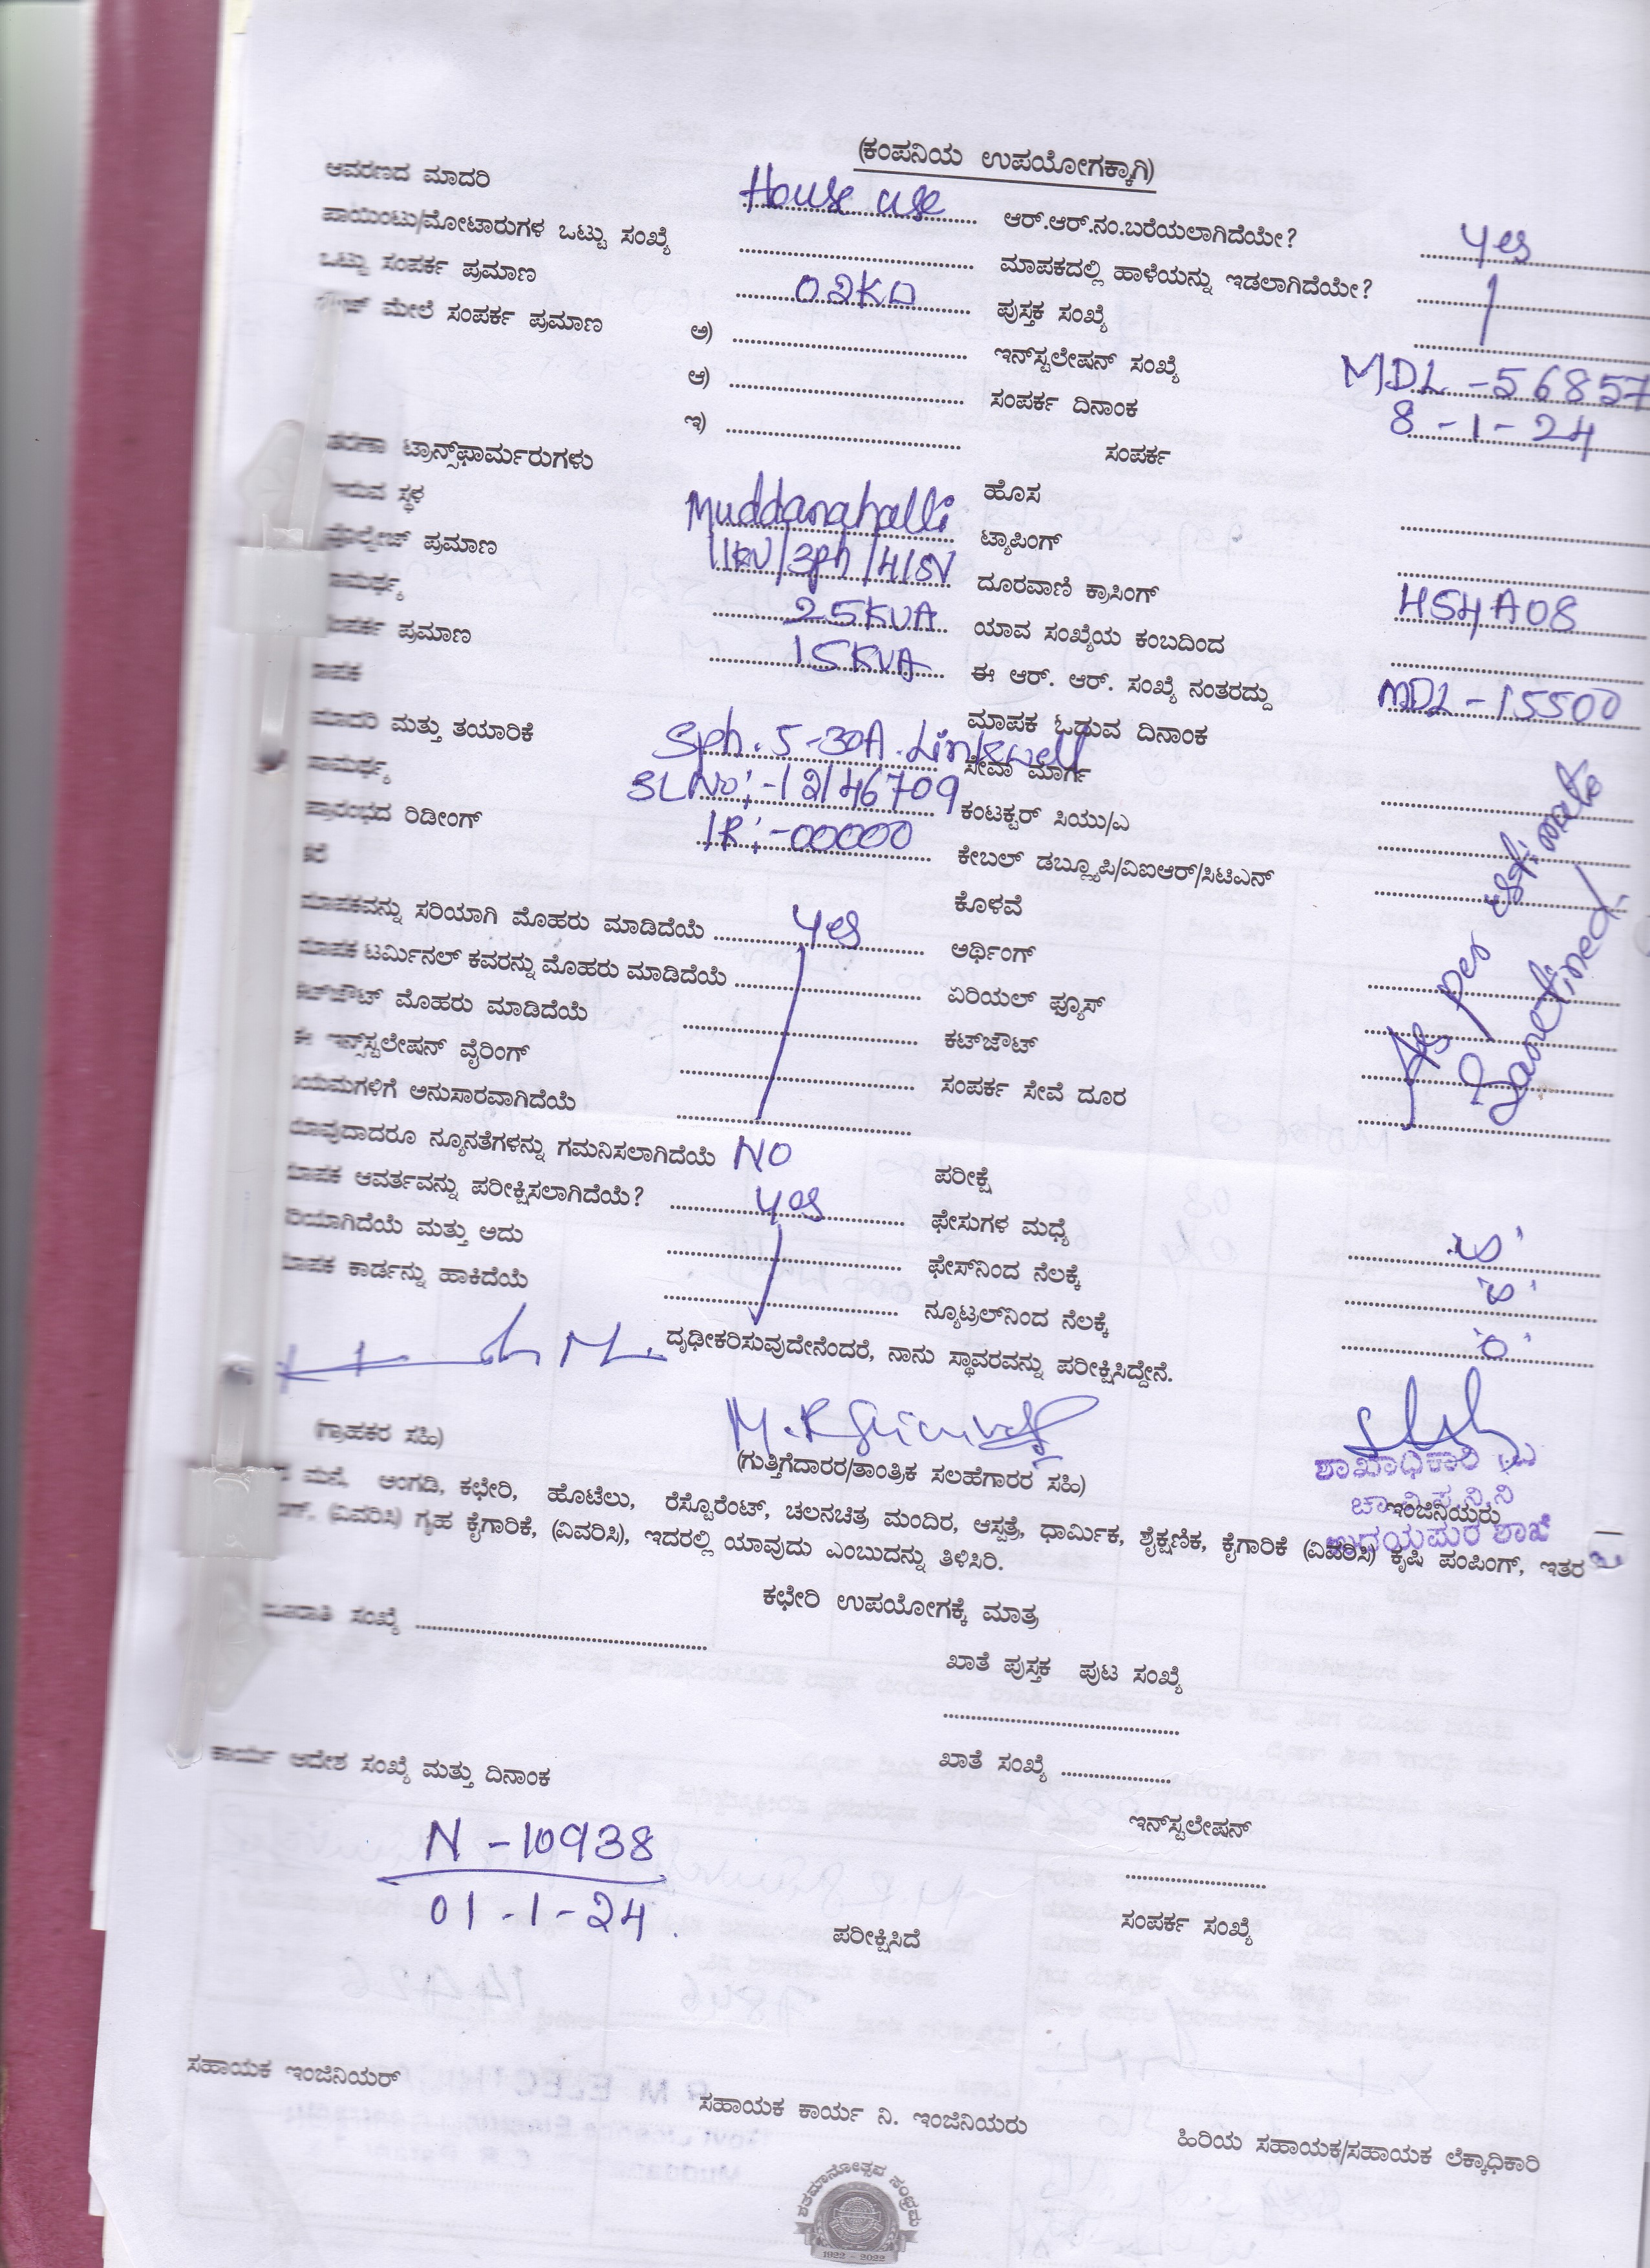 (ಕಂಪನಿಯ ಉಪಯೋಗಕ್ಕಾಗಿ)
ಆವರಣದ ಮಾದರಿ House use ಆರ್.ಆರ್.ನಂ.ಬರೆಯಲಾಗಿದೆಯೇ? yes
ಪಾಯಿಂಟು/ಮೋಟಾರುಗಳ ಒಟ್ಟು ಸಂಖ್ಯೆ ಮಾಪಕದಲ್ಲಿ ಹಾಳೆಯನ್ನು ಇಡಲಾಗಿದೆಯೇ?
ಒಟ್ಟು ಸಂಪರ್ಕ ಪ್ರಮಾಣ 02KW ಪುಸ್ತಕ ಸಂಖ್ಯೆ
ಮೇಲೆ ಸಂಪರ್ಕ ಪ್ರಮಾಣ ಅ) ಇನ್‌ಸ್ಟಲೇಷನ್ ಸಂಖ್ಯೆ MDL-56857
ಆ) ಸಂಪರ್ಕ ದಿನಾಂಕ 8-1-24
ಇ) ಸಂಪರ್ಕ
ಟ್ರಾನ್ಸ್‌ಫಾರ್ಮರುಗಳು ಹೊಸ
ಇರುವ ಸ್ಥಳ Muddanahalli ಟ್ಯಾಪಿಂಗ್
ಪ್ರಮಾಣ 11KV/3ph/415V ದೂರವಾಣಿ ಕ್ರಾಸಿಂಗ್ H54A08
25KVA ಯಾವ ಸಂಖ್ಯೆಯ ಕಂಬದಿಂದ
ಪ್ರಮಾಣ 15KVA ಈ ಆರ್. ಆರ್. ಸಂಖ್ಯೆ ನಂತರದ್ದು MDL-15500
ಮಾಪಕ ಓದುವ ದಿನಾಂಕ
ಮಾದರಿ ಮತ್ತು ತಯಾರಿಕೆ Sph. 5-30A. Linkwell ಸೇವಾ ಮಾರ್ಗ
ಸಾಮರ್ಥ್ಯ SL No:-12146709 ಕಂಟಕ್ಟರ್ ಸಿಯು/ಎ
ಪ್ರಾರಂಭದ ರಿಡೀಂಗ್ IR:-00000 ಕೇಬಲ್ ಡಬ್ಲ್ಯೂಪಿ/ವಿಐಆರ್/ಸಿಟಿಎನ್
ಕೊಳವೆ
ಮಾಪಕವನ್ನು ಸರಿಯಾಗಿ ಮೊಹರು ಮಾಡಿದೆಯೆ yes ಅರ್ಥಿಂಗ್
ಮಾಪಕ ಟರ್ಮಿನಲ್ ಕವರನ್ನು ಮೊಹರು ಮಾಡಿದೆಯೆ ಏರಿಯಲ್ ಫ್ಯೂಸ್
ಕಟ್‌ಔಟ್ ಮೊಹರು ಮಾಡಿದೆಯೆ ಕಟ್‌ಔಟ್
ಈ ಇನ್ಸ್‌ಸ್ಟಲೇಷನ್ ವೈರಿಂಗ್ ಸಂಪರ್ಕ ಸೇವೆ ದೂರ
ನಿಯಮಗಳಿಗೆ ಅನುಸಾರವಾಗಿದೆಯೆ
As per estimate
Sanctined
ಯಾವುದಾದರೂ ನ್ಯೂನತೆಗಳನ್ನು ಗಮನಿಸಲಾಗಿದೆಯೆ NO ಪರೀಕ್ಷೆ
ಮಾಪಕ ಆವರ್ತವನ್ನು ಪರೀಕ್ಷಿಸಲಾಗಿದೆಯೆ? yes ಫೇಸುಗಳ ಮಧ್ಯೆ
ಸರಿಯಾಗಿದೆಯೆ ಮತ್ತು ಅದು ಫೇಸ್‌ನಿಂದ ನೆಲಕ್ಕೆ
ಮಾಪಕ ಕಾರ್ಡನ್ನು ಹಾಕಿದೆಯೆ ನ್ಯೂಟ್ರಲ್‌ನಿಂದ ನೆಲಕ್ಕೆ
ದೃಢೀಕರಿಸುವುದೇನೆಂದರೆ, ನಾನು ಸ್ಥಾವರವನ್ನು ಪರೀಕ್ಷಿಸಿದ್ದೇನೆ.
M.R Srinivas
(ಗ್ರಾಹಕರ ಸಹಿ) (ಗುತ್ತಿಗೆದಾರರ/ತಾಂತ್ರಿಕ ಸಲಹೆಗಾರರ ಸಹಿ)
ಶಾಖಾಧಿಕಾರಿ
ಚಾ.ವಿ.ಸ.ನಿ.ನಿ
ಇಂಜಿನಿಯರು
ಉದಯಪುರ ಶಾಖೆ
ಮನೆ, ಅಂಗಡಿ, ಕಛೇರಿ, ಹೊಟೆಲು, ರೆಸ್ಟೊರೆಂಟ್, ಚಲನಚಿತ್ರ ಮಂದಿರ, ಆಸ್ಪತ್ರೆ, ಧಾರ್ಮಿಕ, ಶೈಕ್ಷಣಿಕ, ಕೈಗಾರಿಕೆ (ವಿವರಿಸಿ) ಕೃಷಿ ಪಂಪಿಂಗ್, ಇತರ
(ವಿವರಿಸಿ) ಗೃಹ ಕೈಗಾರಿಕೆ, (ವಿವರಿಸಿ), ಇದರಲ್ಲಿ ಯಾವುದು ಎಂಬುದನ್ನು ತಿಳಿಸಿರಿ.
ಕಛೇರಿ ಉಪಯೋಗಕ್ಕೆ ಮಾತ್ರ
ಸಂಖ್ಯೆ
ಖಾತೆ ಪುಸ್ತಕ ಪುಟ ಸಂಖ್ಯೆ
ಕಾರ್ಯ ಆದೇಶ ಸಂಖ್ಯೆ ಮತ್ತು ದಿನಾಂಕ ಖಾತೆ ಸಂಖ್ಯೆ
ಇನ್‌ಸ್ಟಲೇಷನ್
N-10938
01-1-24
ಪರೀಕ್ಷಿಸಿದೆ ಸಂಪರ್ಕ ಸಂಖ್ಯೆ
ಸಹಾಯಕ ಇಂಜಿನಿಯರ್ ಸಹಾಯಕ ಕಾರ್ಯ ನಿ. ಇಂಜಿನಿಯರು ಹಿರಿಯ ಸಹಾಯಕ/ಸಹಾಯಕ ಲೆಕ್ಕಾಧಿಕಾರಿ
ಶತಮಾನೋತ್ಸವ ಸಂಭ್ರಮ
1922 - 2022